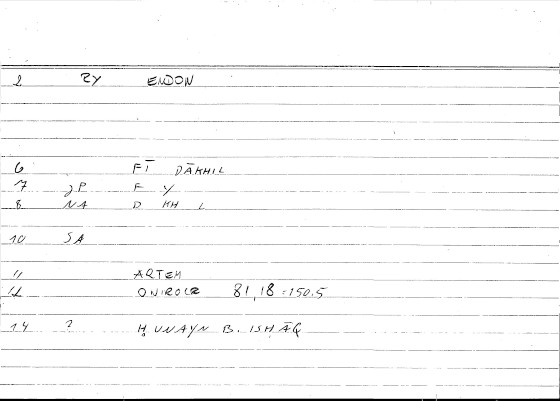 2 RY ENDON
6 FĪ DĀKHIL
7 JP F Y
8 NA D KH L
10 SA
11 ARTEM
12 ONIROCR 81,18=150.5
14 ? ḤUNAYN B. ISḤĀQ